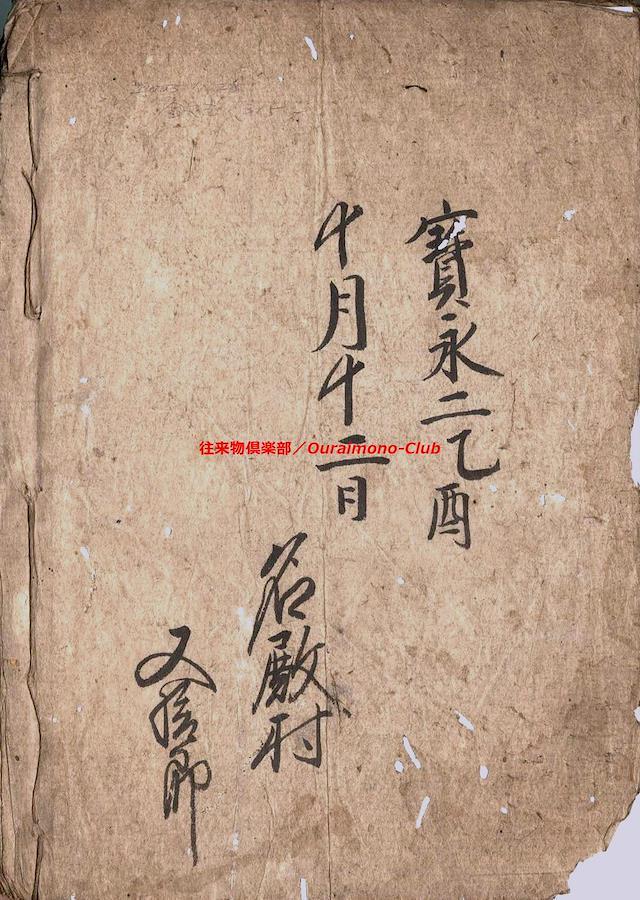 寶永二乙酉
十月十二日
名殿村
又 郎
往来物倶楽部／Ouraimono-Club